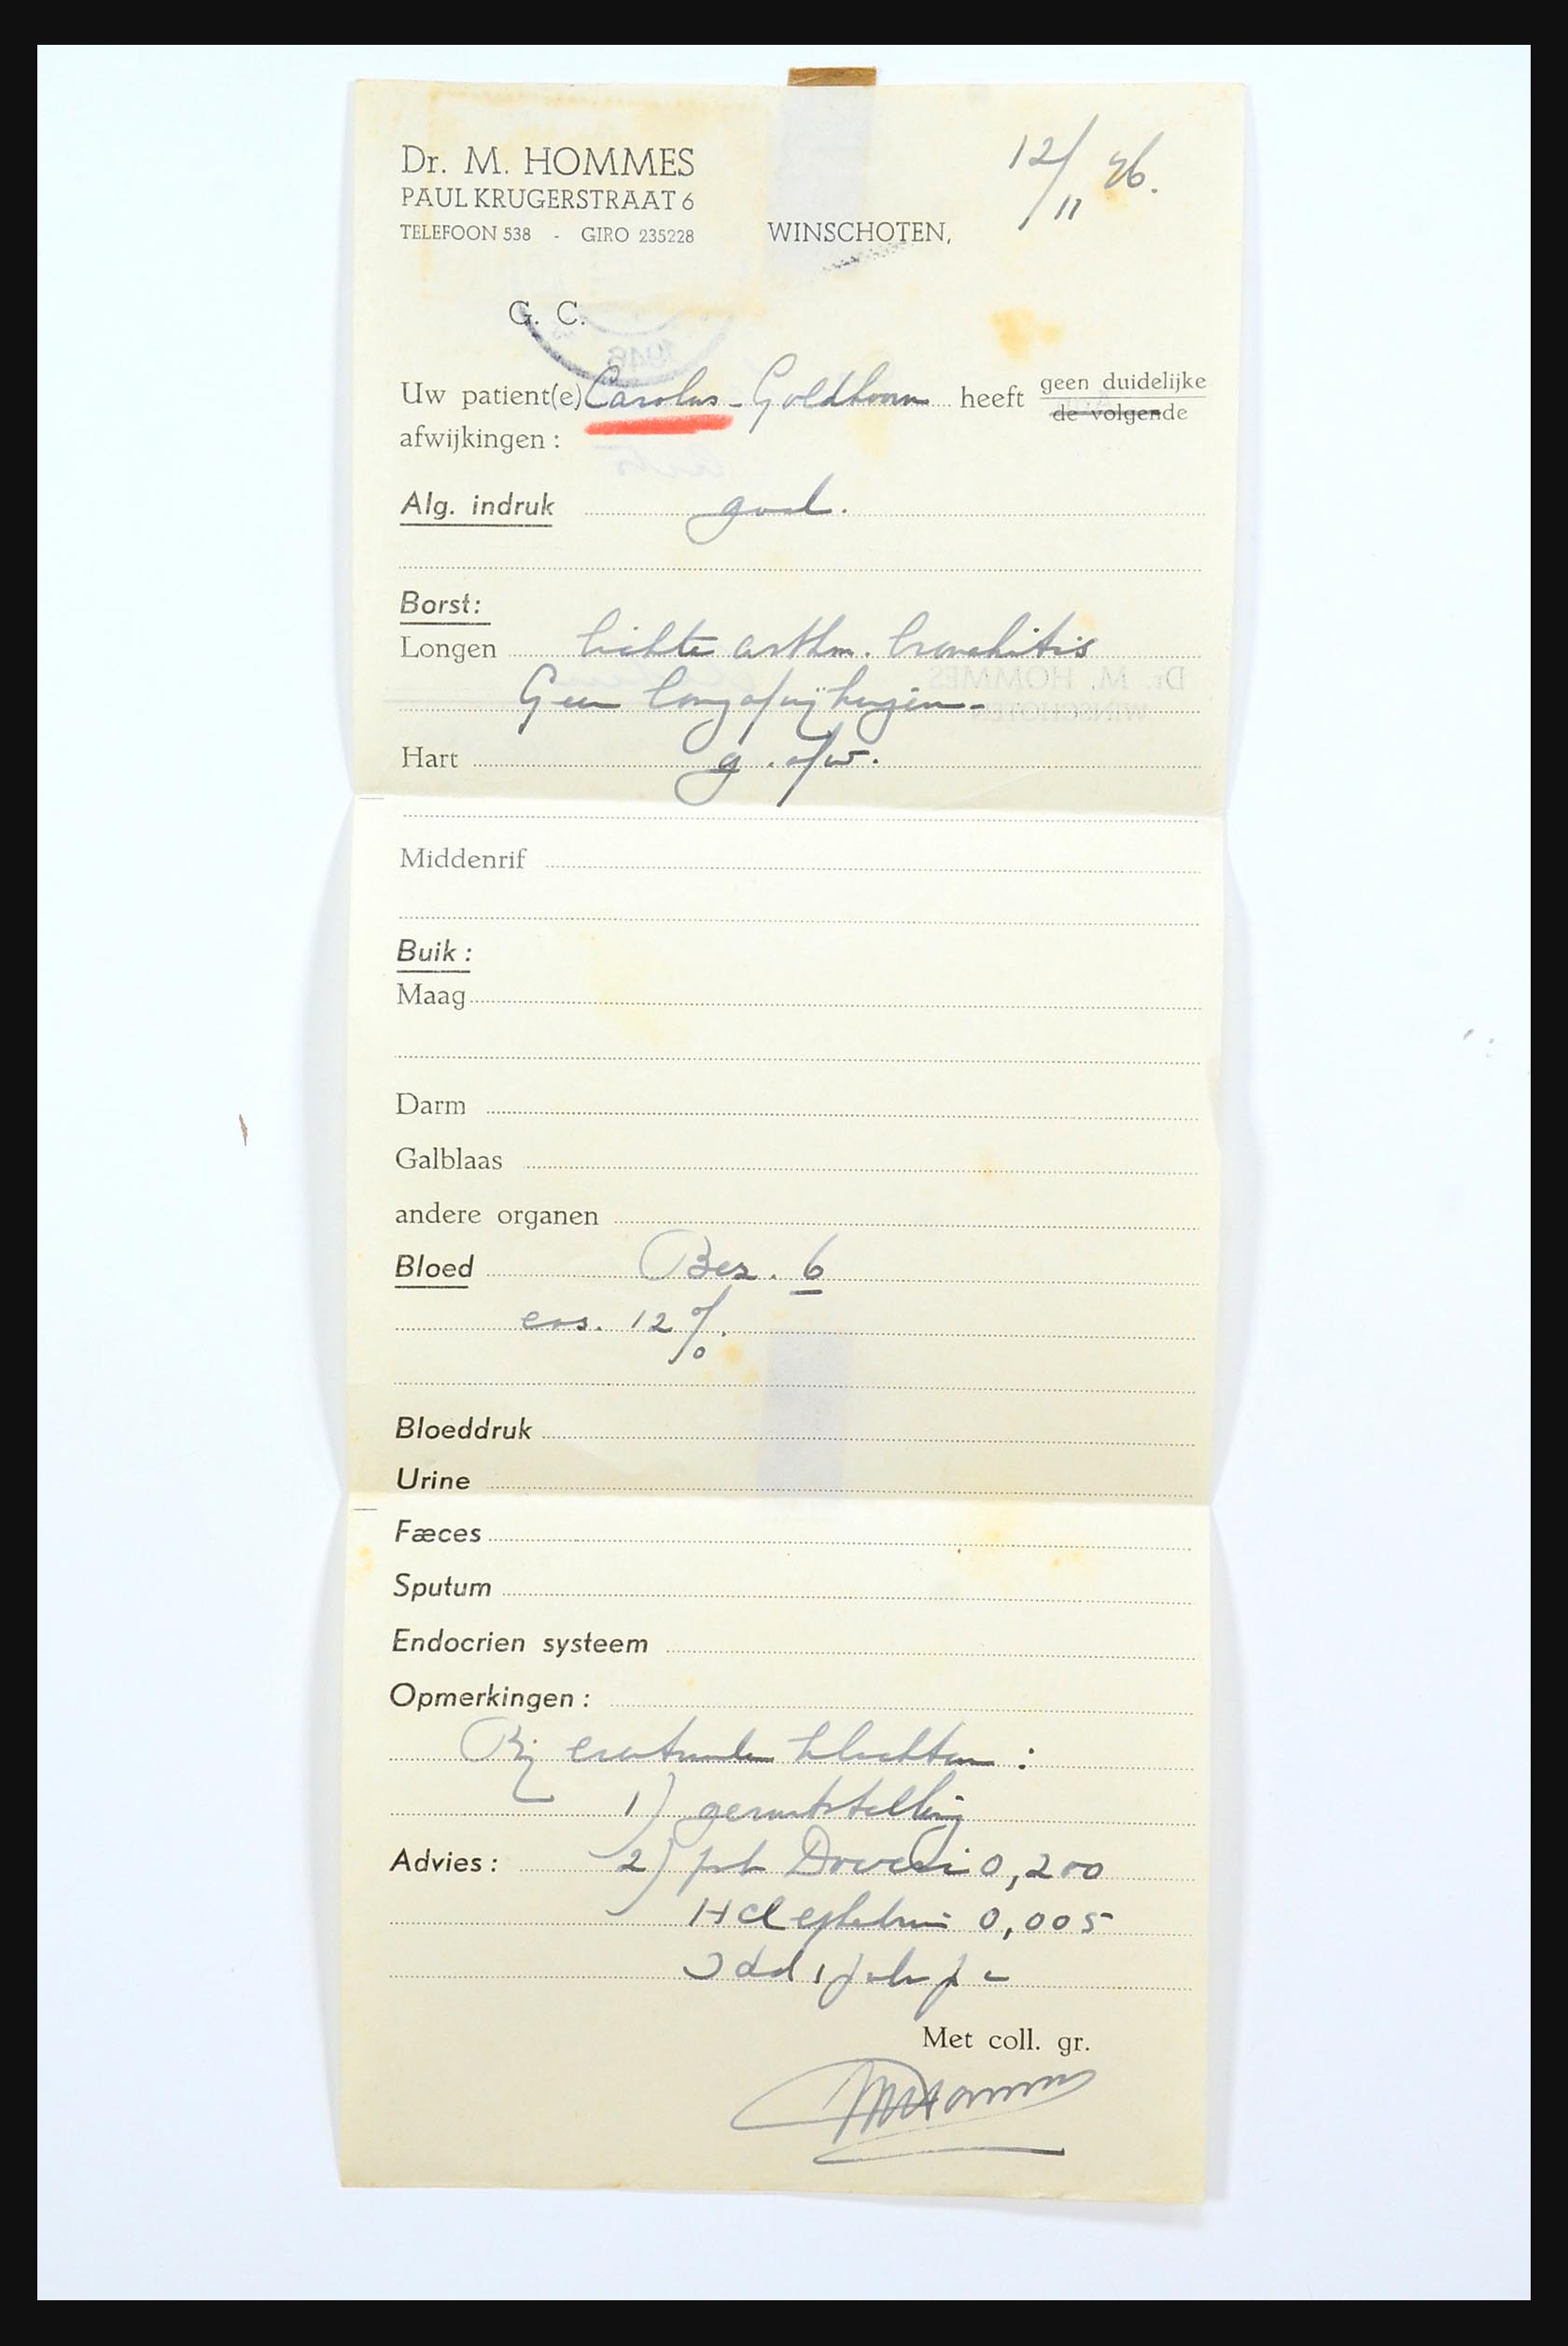 Dr. M. HOMMES
PAUL KRUGERSTRAAT 6
TELEFOON 538 - GIRO 235228
WINSCHOTEN, 12/11 46.
G. C.
Uw patient(e) Carolus - Goldhoorn heeft geen duidelijke
de volgende
afwijkingen:
Alg. indruk goed.
Borst:
Longen lichte asthm. bronchitis
Geen longafwijkingen -
Hart g. afw.
Middenrif
Buik:
Maag
Darm
Galblaas
andere organen
Bloed Bez. 6
eos. 12 %
Bloeddruk
Urine
Fæces
Sputum
Endocrien systeem
Opmerkingen:
Bij eventuele klachten:
1) geruststelling
Advies: 2) Doveri 0,200
HCl ephedrin 0,005
3 dd 1
Met coll. gr.
MHommes
Dr. M. HOMMES
WINSCHOTEN